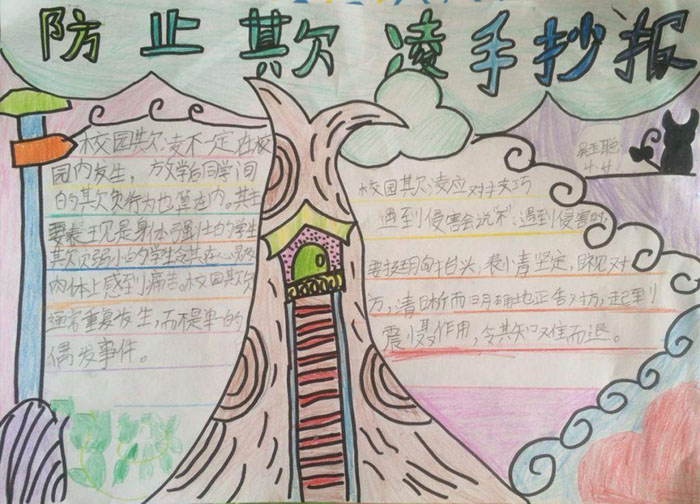 防止欺凌手抄报
校园欺凌不一定在校
园内发生，放学后同学间
的欺负行为也算在内。其主
要表现是身体强壮的学生
欺负弱小的学生令其在心灵
肉体上感到痛苦。校园欺负
通常重复发生，而不是单一的
偶发事件。
四.4
校园欺凌应对技巧
遇到侵害会说"不"：遇到侵害时，
要挺胸抬头，表情坚定，眼见对
方，清晰而明确地正告对方，起到
震慑作用，令其知难而退。